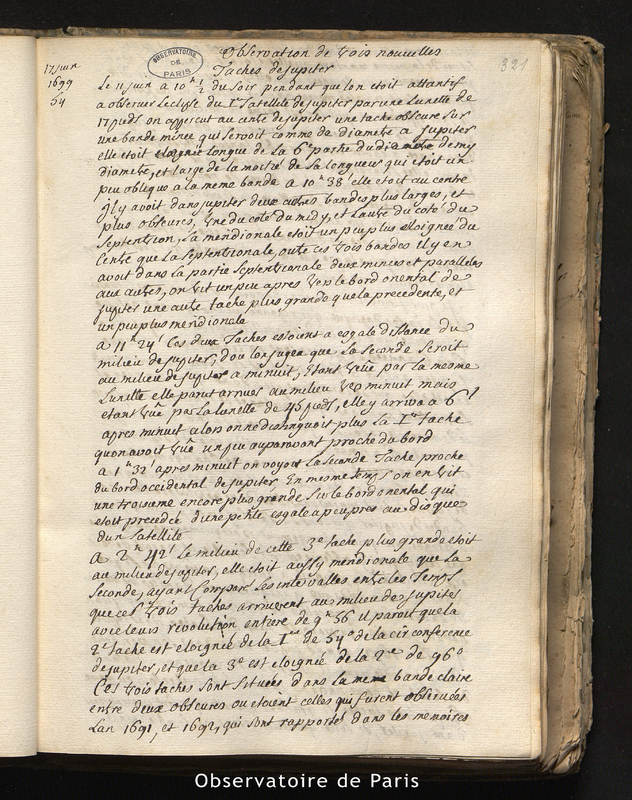 17 Juin
1699
54
OBSERVATOIRE
DE
PARIS
321
Observation de trois nouvelles
Taches de Jupiter
Le 11 Juin a 10h 1/2 du Soir pendant que lon etoit attantif
a observer leclipse du 1er Satellite de Jupiter par une Lunette de
17 pieds on appercut au cente de Jupiter une tache obscure sur
une bande mince qui servoit comme de diametre a Jupiter
elle etoit longue de la 6e partie du diametre de my
diametre, et large de la moitié de Sa longueur qui etoit un
peu oblique a la meme bande a 10h 38' elle etoit au centre
Il y avoit dans Jupiter deux autres bandes plus larges, et
plus obscures, Une du coté du midy, et Lautre du coté du
Septentrion, La meridionale etoit un peu plus eloignée du
Centre que la Septentrionale, outre ces trois bandes il y en
avoit dans la partie Septentrionale deux minces et paralleles
aux autres, on vit un peu apres vers le bord oriental de
Jupiter une autre tache plus grande que la precedente, et
un peu plus meridionale
a 11h 24' Ces deux Taches estoient a esgale distance du
milieu de Jupiter, dou lon jugea que la Seconde Seroit
au milieu de Jupiter a minuit, Etant veüe par la mesme
Lunette elle parut arrivee au milieu vers minuit mais
etant veüe par la Lunette de 45 pieds, elle y arriva a 6'
apres minuit alors on ne distinguoit plus la 1re tache
quon avoit veüe un peu auparavant proche du bord
a 1h 32' apres minuit on voyoit La seconde Tache proche
du bord occidental de Jupiter En mesme temps on en vit
une troisieme encore plus grande Sur le bord oriental qui
etoit precedé d'une petite esgale a peu pres au disque
dun Satellite
A 2h 42' Le milieu de cette 3e tache plus grande etoit
au milieu de Jupiter, elle etoit aussy meridionale que la
Seconde, ayant Comparé Les intervalles entre les Temps
que ces trois taches arriverent au milieu de Jupiter
avec leurs revolution entiere de 9h 56 il paroit que la
2e tache est eloignée de la 1re de 54° de la circonference
de Jupiter, et que la 3e est eloignée de la 2e de 96°
Ces trois taches Sont Situées dans la meme bande claire
entre deux obscures ou etoient celles qui furent observées
Lan 1691, et 1692, qui sont rapporté dans les memoires
Observatoire de Paris